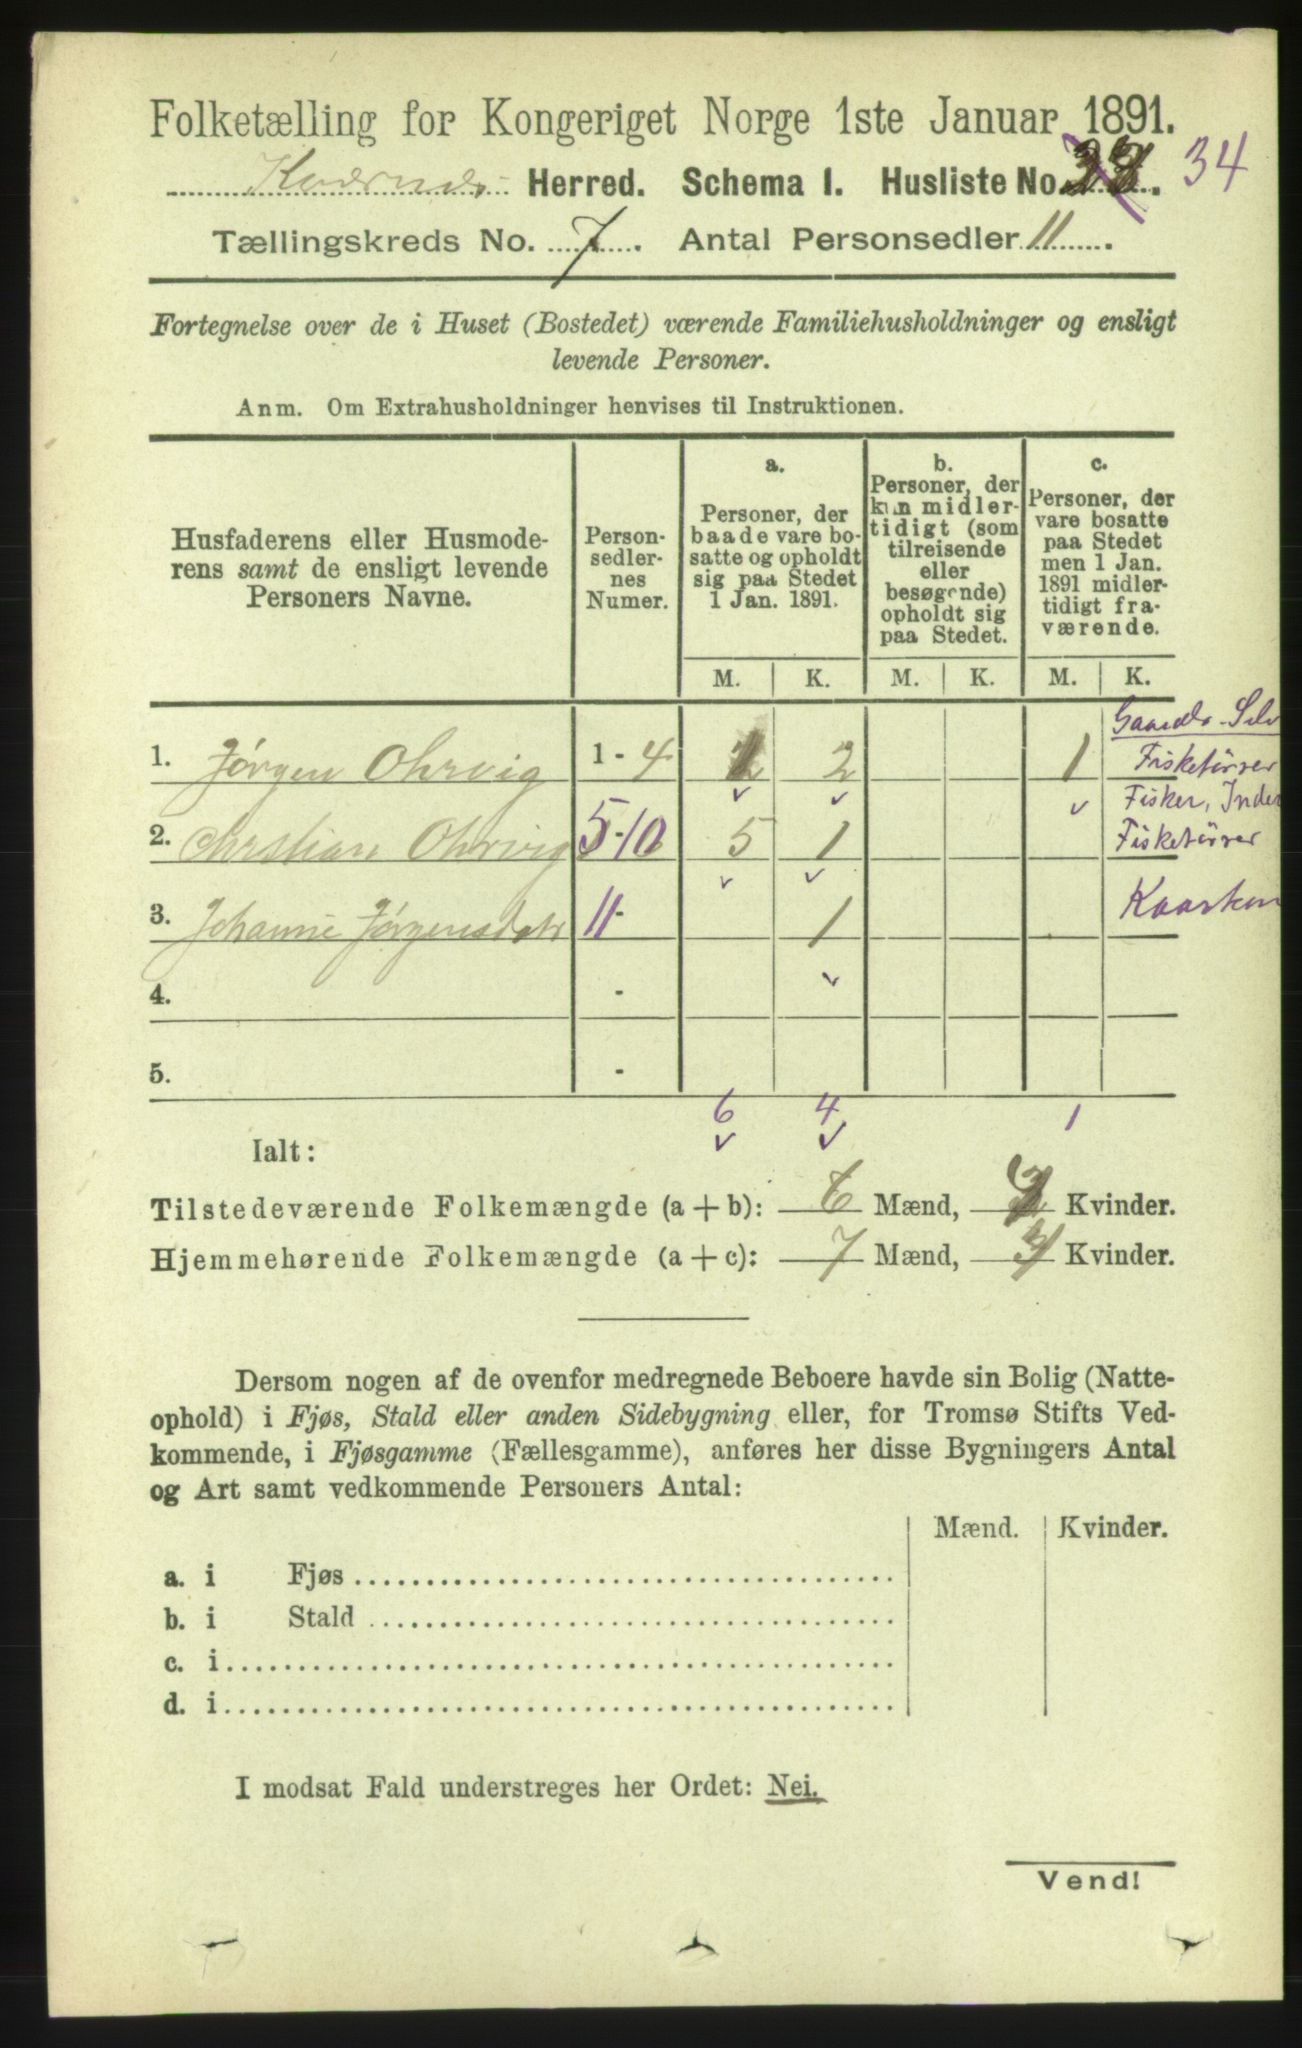 Folketælling for Kongeriget Norge 1ste Januar 1891.
Kvernes Herred. Schema I. Husliste No. 34
Tællingskreds No. 7. Antal Personsedler 11.
Fortegnelse over de i Huset (Bostedet) værende Familiehusholdninger og ensligt
levende Personer.
Anm. Om Extrahusholdninger henvises til Instruktionen.
Husfaderens eller Husmode-
rens samt de ensligt levende
Personers Navne.
Person-
sedler-
nes
Numer.
a.
Personer, der
baade vare bo-
satte og opholdt
sig paa Stedet
1 Jan. 1891.
b.
Personer, der
kun midler-
tidigt (som
tilreisende
eller
besøgende)
opholdt sig
paa Stedet.
c.
Personer, der
vare bosatte
paa Stedet
men 1 Jan.
1891 midler-
tidigt fra-
værende.
M. K. M. K. M. K.
Gaardb. Selv
1. Jørgen Ohrvig 1-4 2 1 Fisketørrer
Fisker, Inder
2. Chrstian Ohrvig 5-10 5 1 Fisketørrer
3. Johanne Jørgensdatr 11- 1 Kaarkon
4. -
5. -
6 4 1
Ialt:
Tilstedeværende Folkemængde (a + b): 6 Mænd, Kvinder.
Hjemmehørende Folkemængde (a + c): 7 Mænd, Kvinder.
Dersom nogen af de ovenfor medregnede Beboere havde sin Bolig (Natte-
ophold) i Fjøs, Stald eller anden Sidebygning eller, for Tromsø Stifts Ved-
kommende, i Fjøsgamme (Fællesgamme), anføres her disse Bygningers Antal
og Art samt vedkommende Personers Antal:
Mænd. Kvinder.
a. i Fjøs
b. i Stald
c. i
d. i
I modsat Fald understreges her Ordet: Nei.
Vend!